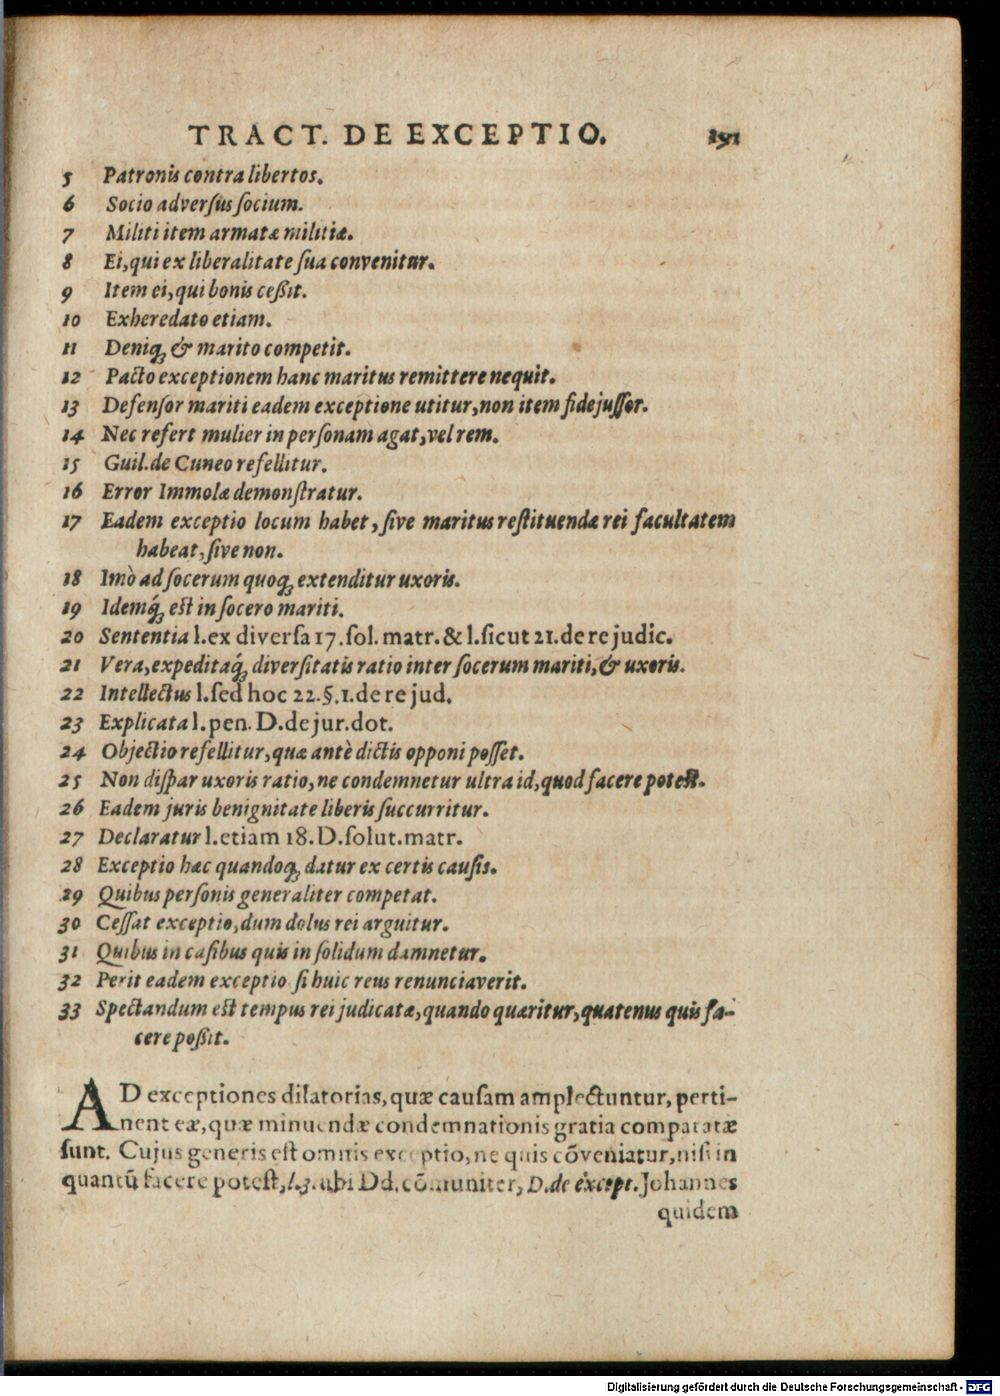 TRACT. DE EXCEPTIO. 191
5 Patronis contra libertos.
6 Socio adverſus ſocium.
7 Militi item armatæ militiæ.
8 Ei, qui ex liberalitate ſua convenitur.
9 Item ei, qui bonis ceßit.
10 Exheredato etiam.
11 Deniq; & marito competit.
12 Pacto exceptionem hanc maritus remittere nequit.
13 Defenſor mariti eadem exceptione utitur, non item fidejuſſor.
14 Nec refert mulier in perſonam agat, vel rem.
15 Guil. de Cuneo refellitur.
16 Error Immolæ demonſtratur.
17 Eadem exceptio locum habet, ſive maritus reſtituendæ rei facultatem
habeat, ſive non.
18 Imò ad ſocerum quoq; extenditur uxoris.
19 Idemq́; eſt in ſocero mariti.
20 Sententia l. ex diverſa 17. ſol. matr. & l. ſicut 21. de re judic.
21 Vera, expeditaq́; diverſitatis ratio inter ſocerum mariti, & uxoris.
22 Intellectus l. ſed hoc 22. §. 1. de re jud.
23 Explicata l. pen. D. de jur. dot.
24 Objectio refellitur, quæ antè dictis opponi poſſet.
25 Non diſpar uxoris ratio, ne condemnetur ultra id, quod facere poteſt.
26 Eadem juris benignitate liberis ſuccurritur.
27 Declaratur l. etiam 18. D. ſolut. matr.
28 Exceptio hæc quandoq; datur ex certis cauſis.
29 Quibus perſonis generaliter competat.
30 Ceſſat exceptio, dum dolus rei arguitur.
31 Quibus in caſibus quis in ſolidum damnetur.
32 Perit eadem exceptio ſi huic reus renunciaverit.
33 Spectandum eſt tempus rei judicatæ, quando quæritur, quatenus quis fa-
cere poßit.
AD exceptiones dilatorias, quæ cauſam amplectuntur, perti-
nent eæ, quæ minuendæ condemnationis gratia comparatæ
ſunt. Cujus generis eſt omnis exceptio, ne quis cōveniatur, niſi in
quantū facere poteſt, l. 3. ubi Dd. cōmuniter, D. de except. Johannes
quidem
Digitalisierung gefördert durch die Deutsche Forschungsgemeinschaft - DFG